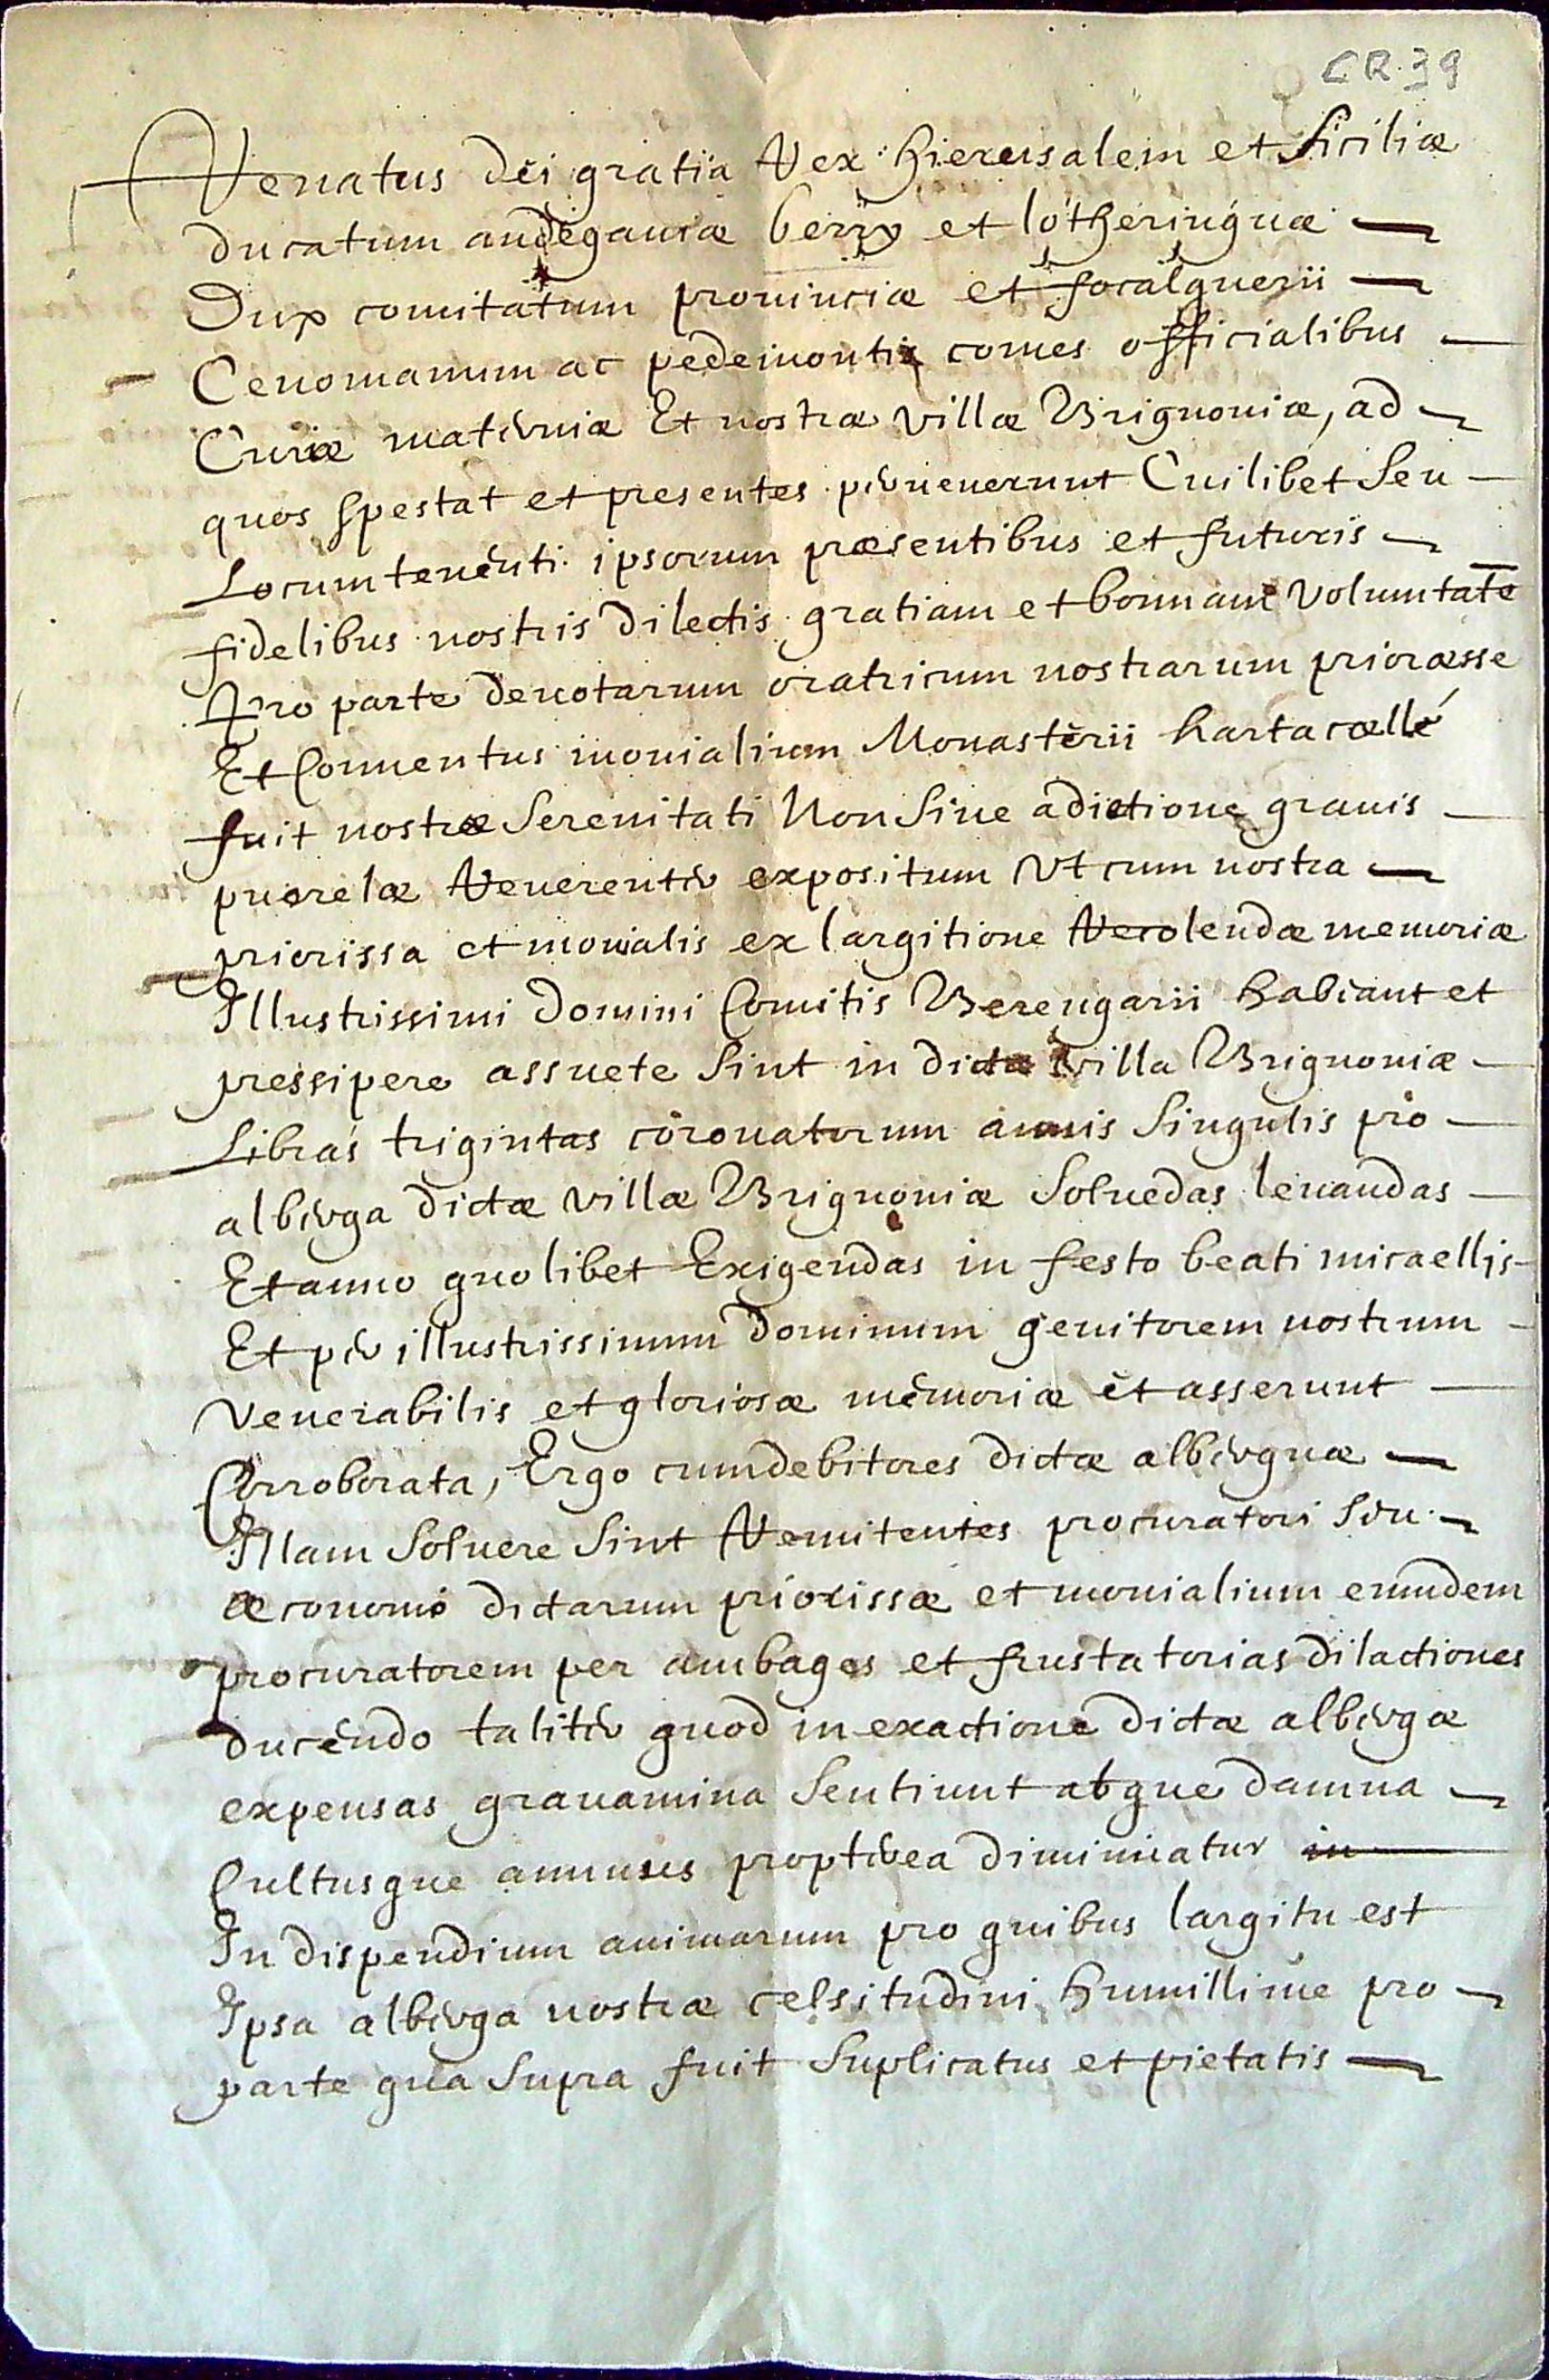 CR. 39
Renatus dei gratia Rex hierusalem et Siciliæ
ducatum andegauiæ berry et lotheringuæ
Dux comitatum prouinciæ et focalquerii
Cenomanum ac pedemontis comes officialibus
Curiæ materniæ Et nostræ villæ Brignoniæ, ad
quos spestat et presentes peruenerunt Cuilibet Seu
Locumtenenti ipsorum præsentibus et futuris
fidelibus nostris dilectis gratiam et bonnam voluntatē
Pro parte deuotarum oratricum nostrarum prioræsse
Et Conuentus monialium Monasterii hartacællé
fuit nostræ Serenitati Non Sine adictione grauis
puerelæ Reuerenter expositum Vt cum nostra
priorissa et monialis ex largitione Recolendæ memoriæ
Illustrissimi Domini Comitis Berengarii habeant et
pressipere assuete Sint in dicta villa Brignoniæ
Libras trigintas coronatorum annis Singulis pro
alberga dictæ villæ Brignoniæ Soluedas leuandas
Et anno quolibet Exigendas in festo beati micaellis
Et per illustrissimum Dominum genitorem nostrum
Venerabilis et gloriosæ memoriæ et asserunt
Corroborata, Ergo cum debitores dictæ alberguæ
Illam Soluere Sint Remitentes procuratori Seu
œconomo dictarum priorissæ et monialium eumdem
procuratorem per ambages et frustatorias dilactiones
ducendo taliter quod in exactione dictæ albergæ
expensas grauamina Sentiunt atque damna
Cultusque propterea diminuatur in
In dispendium animarum pro quibus largitu est
Ipsa alberga nostræ celsitudini humillime pro
parte qua Supra fuit Suplicatus et pietatis